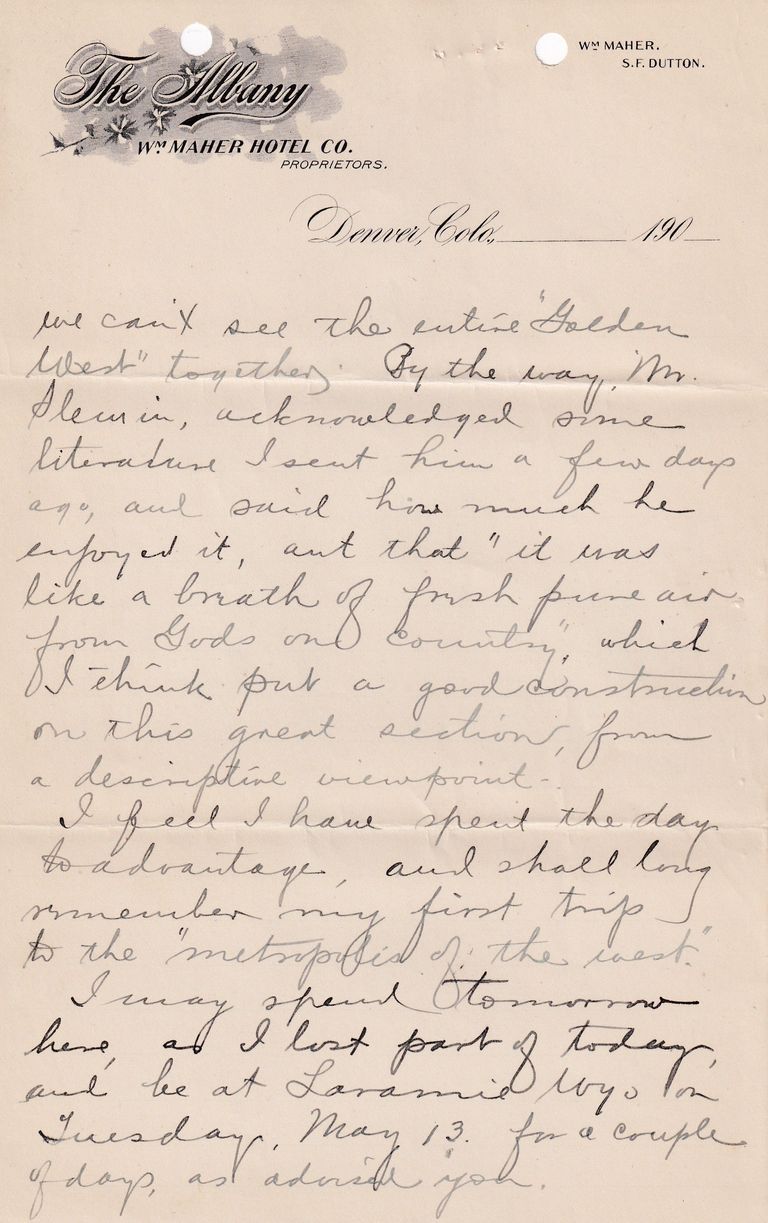 The Albany
Wm MAHER HOTEL CO.
PROPRIETORS.
Wm MAHER.
S.F. DUTTON.
Denver, Colo., 190
we can't see the entire "Golden
West" together. By the way, Mr.
acknowledged some
literature I sent him a few days
ago, and said how much he
enjoyed it, ant that "it was
like a breath of fresh pure air
from Gods own country", which
I think put a good construction
on this great section, from
a descriptive viewpoint-.
I feel I have spent the day
to advantage, and shall long
remember my first trip
to the "metropolis of the west."
I may spend tomorrow
here, as I lost part of today,
and be at Laramie Wyo on
Tuesday, May 13. for a couple
of days, as advised you.